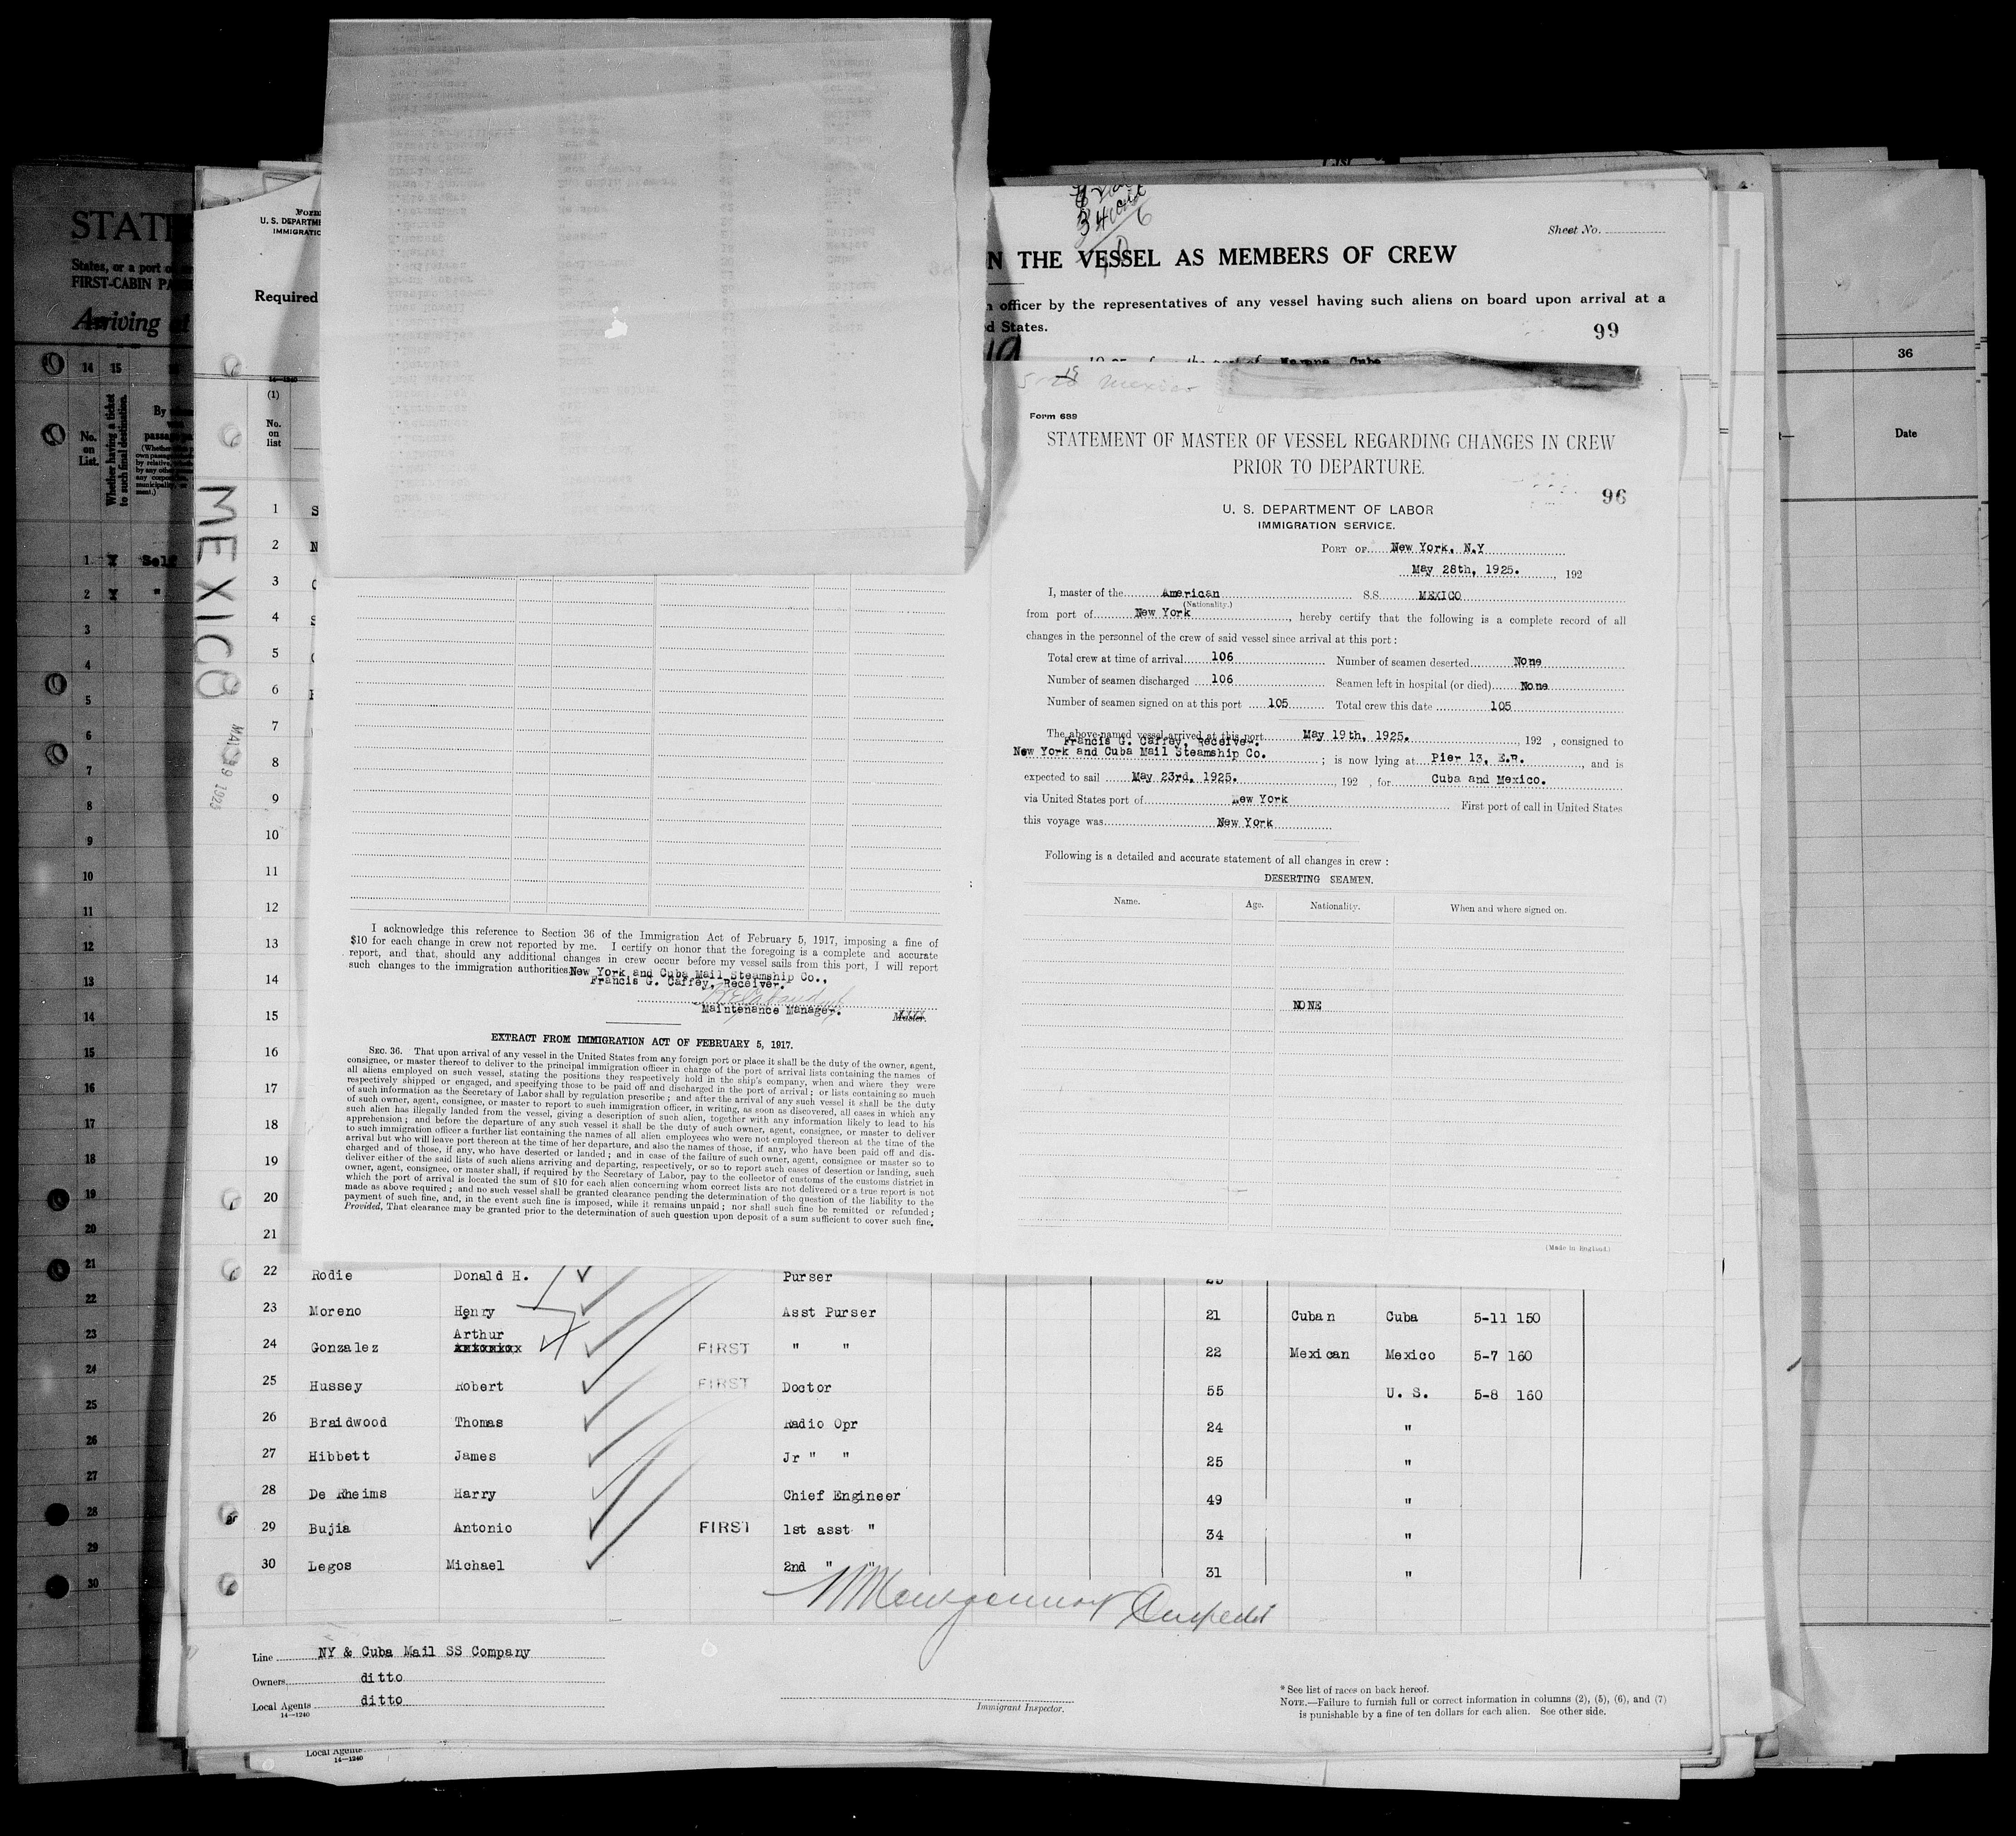 STATE
States, or a port of
FIRST-CABIN PA
Arriving at
14 15
No. on List.
Whether having a ticket to such final destination.
By
passage
1 Self
2 "
3
4
5
6
7
8
9
10
11
12
13
14
15
16
17
18
19
20
21
22
23
24
25
26
27
28
29
30
36
Date
MEXICO
Form
U. S. DEPARTME
IMMIGRATIO
Required
14—1240
(1)
No.
on
list
Sheet No.
N THE VESSEL AS MEMBERS OF CREW
officer by the representatives of any vessel having such aliens on board upon arrival at a
d States.
99
from the port of Havana Cuba
1 S
2 N
3
4 S
5
6
7
8
9
10
11
12
13
14
15
16
17
18
19
20
21
I acknowledge this reference to Section 36 of the Immigration Act of February 5, 1917, imposing a fine of
$10 for each change in crew not reported by me. I certify on honor that the foregoing is a complete and accurate
report, and that, should any additional changes in crew occur before my vessel sails from this port, I will report
such changes to the immigration authorities. New York and Cuba Mail Steamship Co.,
Francis G. Caffey, Receiver.
Maintenance Manager. Master.
EXTRACT FROM IMMIGRATION ACT OF FEBRUARY 5, 1917.
SEC. 36. That upon arrival of any vessel in the United States from any foreign port or place it shall be the duty of the owner, agent,
consignee, or master thereof to deliver to the principal immigration officer in charge of the port of arrival lists containing the names of
all aliens employed on such vessel, stating the positions they respectively hold in the ship's company, when and where they were
respectively shipped or engaged, and specifying those to be paid off and discharged in the port of arrival; or lists containing so much
of such information as the Secretary of Labor shall by regulation prescribe; and after the arrival of any such vessel it shall be the duty
of such owner, agent, consignee, or master to report to such immigration officer, in writing, as soon as discovered, all cases in which any
such alien has illegally landed from the vessel, giving a description of such alien, together with any information likely to lead to his
apprehension; and before the departure of any such vessel it shall be the duty of such owner, agent, consignee, or master to deliver
to such immigration officer a further list containing the names of all alien employees who were not employed thereon at the time of the
arrival but who will leave port thereon at the time of her departure, and also the names of those, if any, who have been paid off and dis-
charged and of those, if any, who have deserted or landed; and in case of the failure of such owner, agent, consignee or master so to
deliver either of the said lists of such aliens arriving and departing, respectively, or so to report such cases of desertion or landing, such
owner, agent, consignee, or master shall, if required by the Secretary of Labor, pay to the collector of customs of the customs district in
which the port of arrival is located the sum of $10 for each alien concerning whom correct lists are not delivered or a true report is not
made as above required; and no such vessel shall be granted clearance pending the determination of the question of the liability to the
payment of such fine, and, in the event such fine is imposed, while it remains unpaid; nor shall such fine be remitted or refunded;
Provided, That clearance may be granted prior to the determination of such question upon deposit of a sum sufficient to cover such fine.
Mexico
Form 689
STATEMENT OF MASTER OF VESSEL REGARDING CHANGES IN CREW
PRIOR TO DEPARTURE.
96
U. S. DEPARTMENT OF LABOR
IMMIGRATION SERVICE.
PORT OF New York, N.Y
May 28th, 1925. , 192
I, master of the American S.S. MEXICO
(Nationality.)
from port of New York , hereby certify that the following is a complete record of all
changes in the personnel of the crew of said vessel since arrival at this port:
Total crew at time of arrival 106 Number of seamen deserted None
Number of seamen discharged 106 Seamen left in hospital (or died) None
Number of seamen signed on at this port 105 Total crew this date 105
The above-named vessel arrived at this port May 19th, 1925. , 192 , consigned to
Francis G. Caffey, Receiver.
New York and Cuba Mail Steamship Co. ; is now lying at Pier 13, E.R. , and is
expected to sail May 23rd, 1925. , 192 , for Cuba and Mexico.
via United States port of New York First port of call in United States
this voyage was New York
Following is a detailed and accurate statement of all changes in crew:
DESERTING SEAMEN.
Name. Age. Nationality. When and where signed on.
NONE
(Made in England.)
22 Rodie Donald H. Purser
23 Moreno Henry Asst Purser 21 Cuban Cuba 5-11 150
Arthur
24 Gonzalez FIRST " " 22 Mexican Mexico 5-7 160
25 Hussey Robert FIRST Doctor 55 U. S. 5-8 160
26 Braidwood Thomas Radio Opr 24 "
27 Hibbett James Jr " " 25 "
28 De Rheims Harry Chief Engineer 49 "
29 Bujia Antonio FIRST 1st asst " 34 "
30 Legos Michael 2nd " " 31 "
Line NY & Cuba Mail SS Company
Owners ditto
Local Agents ditto
14—1240
Immigrant Inspector.
* See list of races on back hereof.
NOTE.—Failure to furnish full or correct information in columns (2), (5), (6), and (7)
is punishable by a fine of ten dollars for each alien. See other side.
Local Agents
14—1240